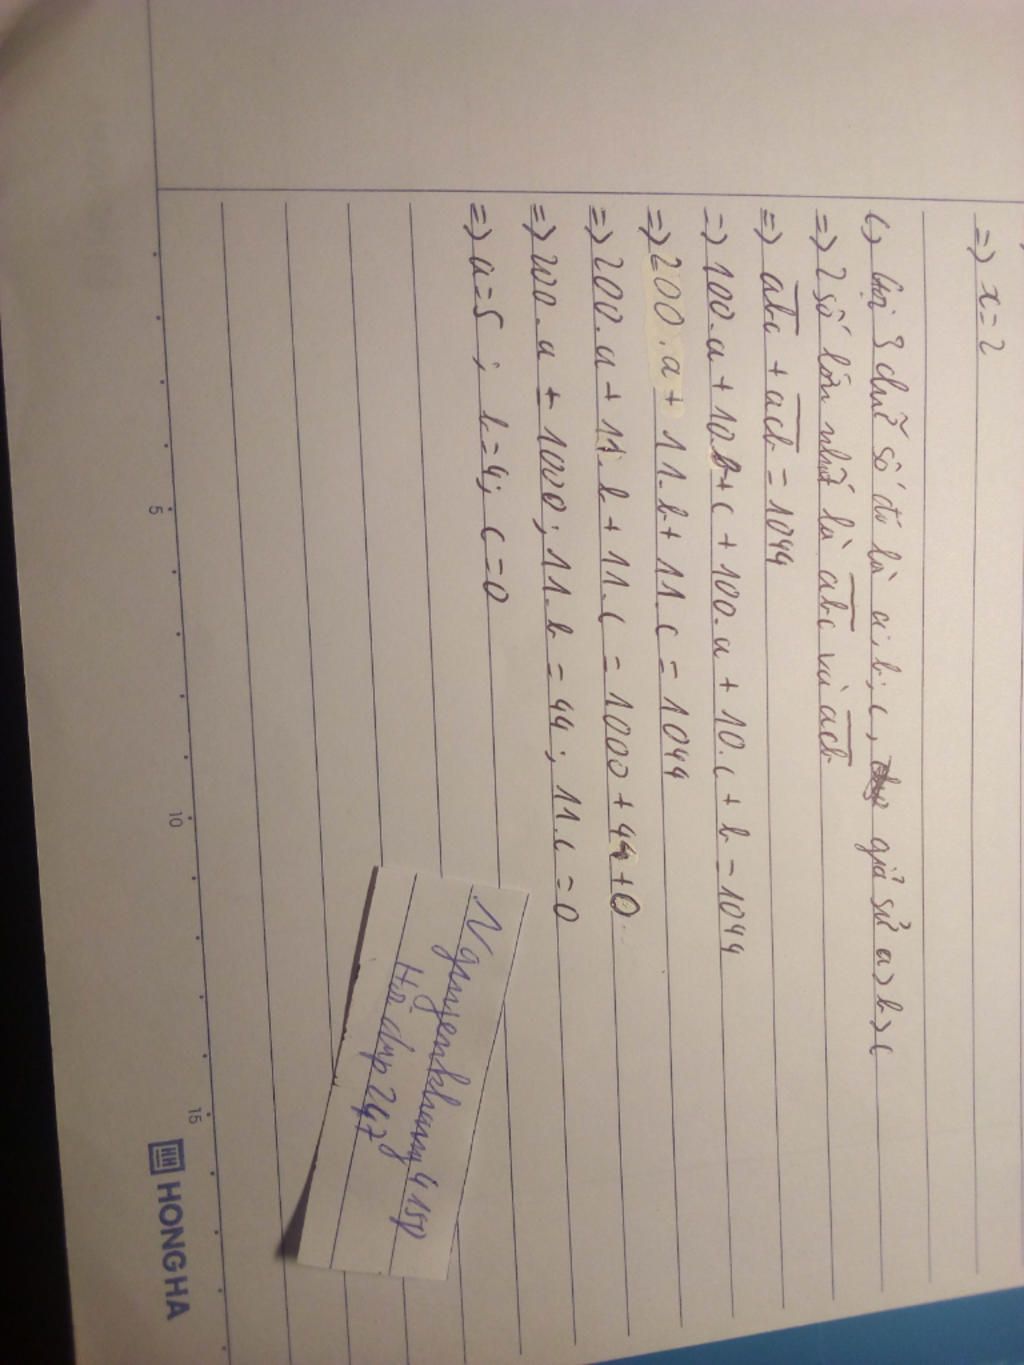 => x=2
c, Gọi 3 chữ số đó là a; b; c, giả sử a>b>c
=> 2 số lớn nhất là abc và acb
=> abc + acb = 1044
=> 100.a+10.b+c+100.a+10.c+b=1044
=> 200.a+11.b+11.c=1044
=> 200.a+11.b+11.c=1000+44+0
=> 200.a=1000; 11.b=44; 11.c=0
=> a=5; b=4; c=0
Nguyenkhang4158
Hỏi đáp 247
5
10
15
HH HONG HA